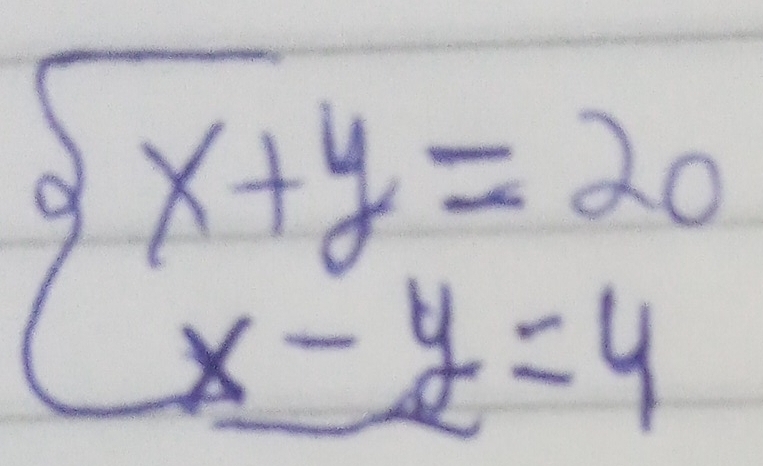 x+y=20
x-y=4